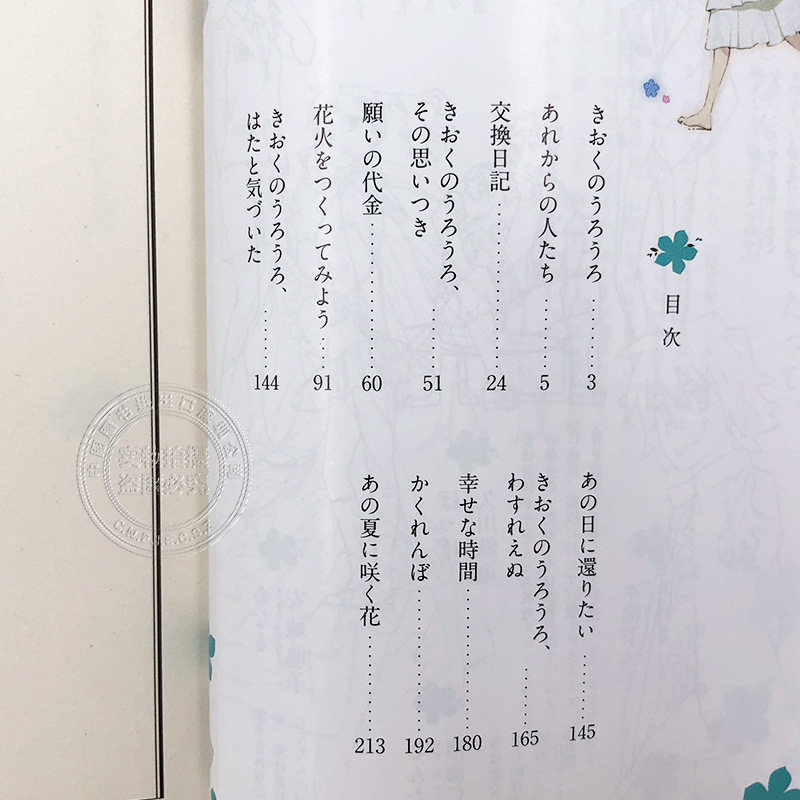 目次
きおくのうろうろ………3
あれからの人たち………5
交換日記………24
きおくのうろうろ、
その思いつき………51
願いの代金………60
花火をつくってみよう………91
きおくのうろうろ、
はたと気づいた………144
あの日に還りたい………145
きおくのうろうろ、
わすれえぬ………165
幸せな時間………180
かくれんぼ………192
あの夏に咲く花………213